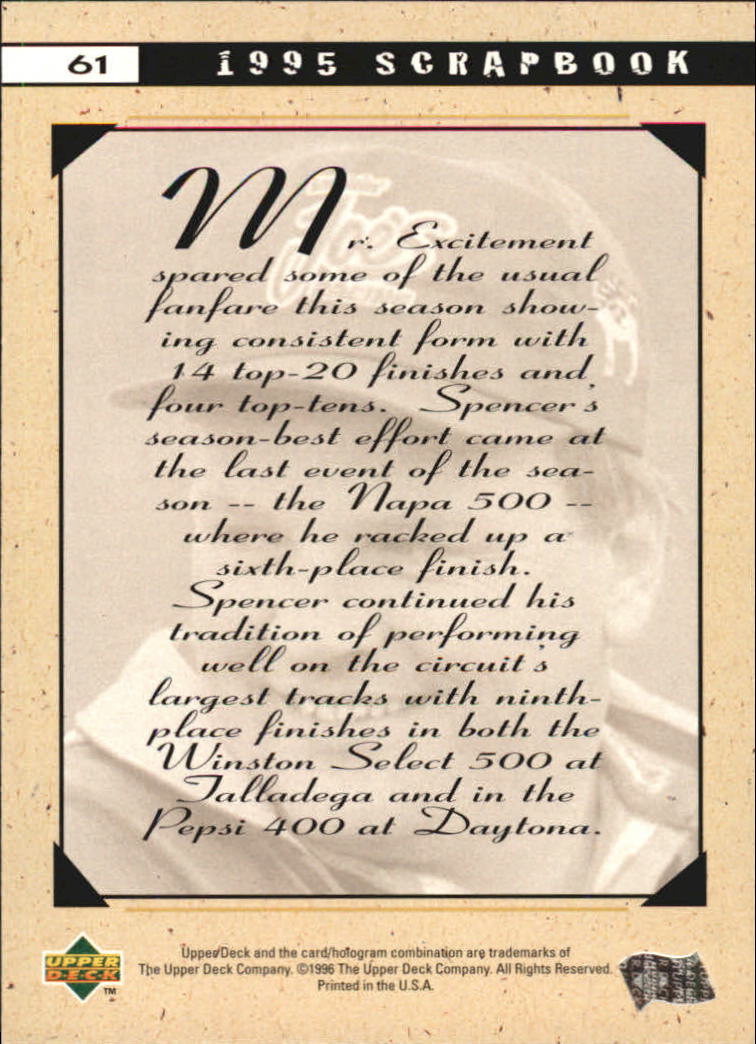 61 1995 SCRAPBOOK
Mr. Excitement
spared some of the usual
fanfare this season show-
ing consistent form with
14 top-20 finishes and
four top-tens. Spencer's
season-best effort came at
the last event of the sea-
son -- the Napa 500 --
where he racked up a
sixth-place finish.
Spencer continued his
tradition of performing
well on the circuit's
largest tracks with ninth-
place finishes in both the
Winston Select 500 at
Talladega and in the
Pepsi 400 at Daytona.
Upper Deck and the card/hologram combination are trademarks of
The Upper Deck Company. ©1996 The Upper Deck Company. All Rights Reserved.
Printed in the U.S.A.
UPPER
DECK
TM